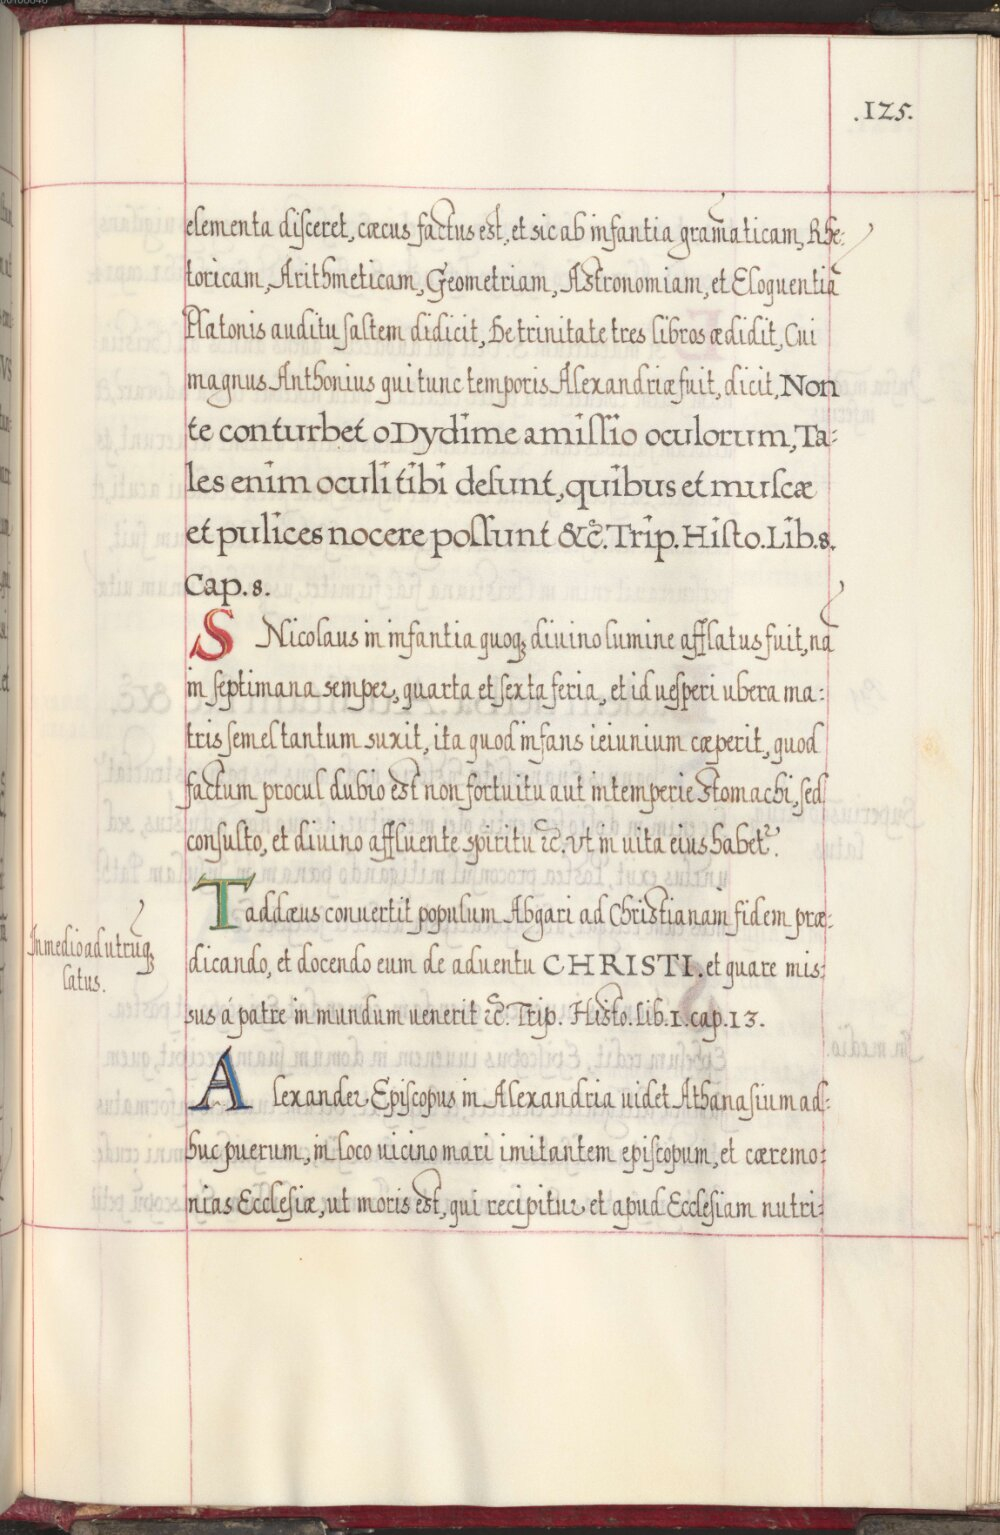 .125.
elementa diſceret, cæcus factus est, et sic ab infantia gram̃aticam, Rhe:
toricam, Arithmeticam, Geometriam, Astronomiam, et Eloquentiã
Platonis auditu ſaltem didicit, De trinitate tres libros ædidit, Cui
magnus Anthonius qui tunc temporis Alexandriæ fuit, dicit, Non
te conturbet o Dydime amiſſio oculorum, Ta:
les enim oculi tibi deſunt, quibus et muſcæ
et pulices nocere poſſunt &c̃. Trip. Hiſto. Lib. 8.
Cap. 8.
S Nicolaus in infantia quoqꝫ diuino lumine afflatus fuit, nã
in ſeptimana semper, quarta et ſexta feria, et id ueſperi ubera ma:
tris ſemel tantum suxit, ita quod infans ieiunium cæperit, quod
factum procul dubio est non fortuitu aut intemperie stomachi, ſed
conſulto, et diuino affluente spiritu ⁊c̃. Vt in uita eius habetᷣ.
Taddæus conuertit populum Abgari ad Christianam fidem præ:
In medio ad utrūqꝫ
latus.
dicando, et docendo eum de aduentu CHRISTI. et quare mis:
sus á patre in mundum uenerit ⁊c̃. Trip. Histo. Lib. 1. cap. 13.
Alexander Epiſcopus in Alexandria uidet Athanaſium ad:
huc puerum, in loco uicino mari imitantem epiſcopum, et cæremo:
nias Eccleſiæ, ut moris est, qui recipitur et apud Eccleſiam nutri: